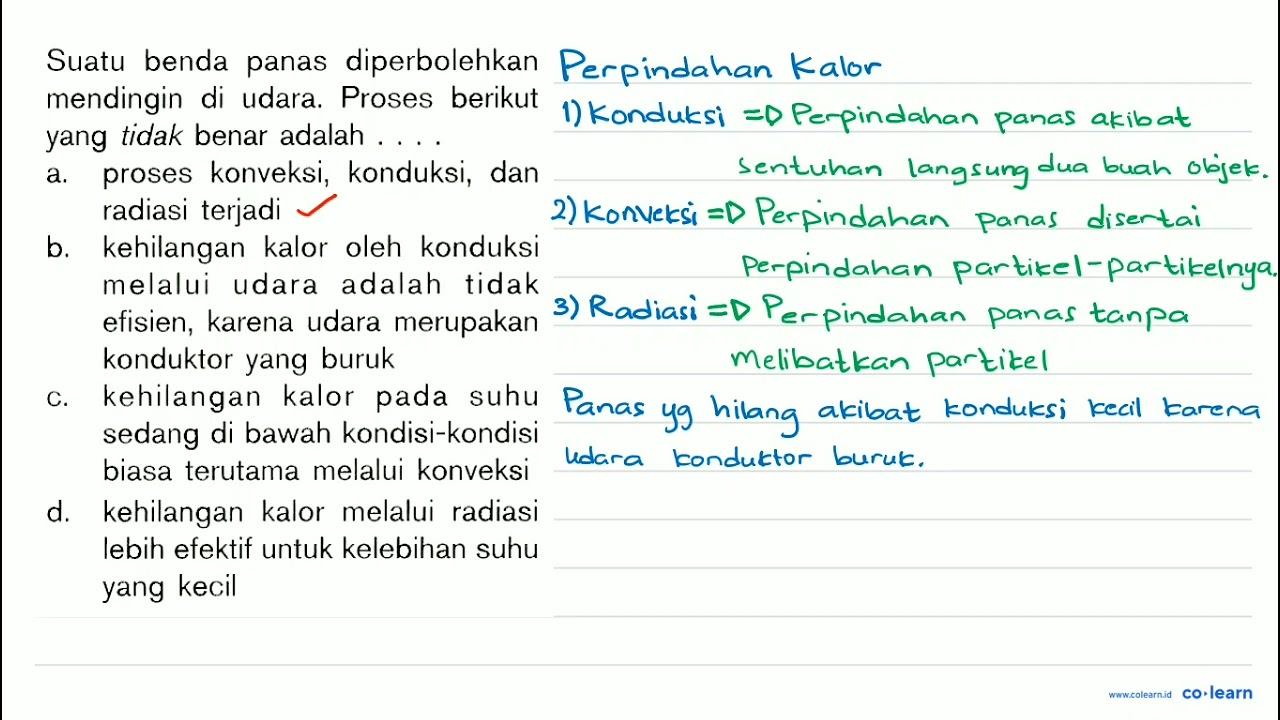 Suatu benda panas diperbolehkan
mendingin di udara. Proses berikut
yang tidak benar adalah . . . .
a. proses konveksi, konduksi, dan
radiasi terjadi
b. kehilangan kalor oleh konduksi
melalui udara adalah tidak
efisien, karena udara merupakan
konduktor yang buruk
c. kehilangan kalor pada suhu
sedang di bawah kondisi-kondisi
biasa terutama melalui konveksi
d. kehilangan kalor melalui radiasi
lebih efektif untuk kelebihan suhu
yang kecil
Perpindahan Kalor
1) Konduksi => Perpindahan panas akibat
sentuhan langsung dua buah objek.
2) Konveksi => Perpindahan panas disertai
Perpindahan partikel-partikelnya.
3) Radiasi => Perpindahan panas tanpa
melibatkan partikel
Panas yg hilang akibat konduksi kecil karena
udara konduktor buruk.
www.colearn.id co·learn